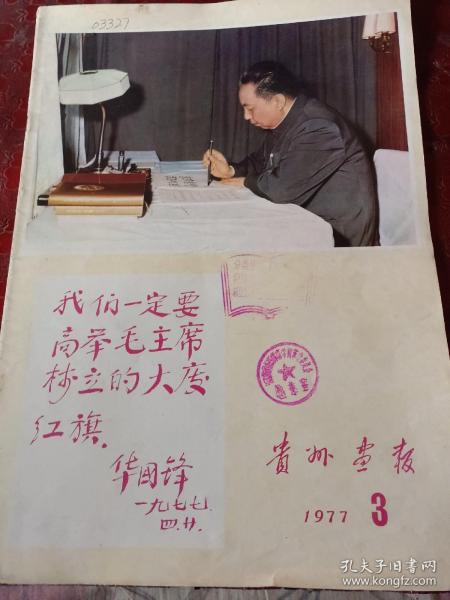 03327
我们一定要
高举毛主席
树立的大庆
红旗.
华国锋
一九七七.
四.廿.
贵州画报
1977 3
孔夫子旧书网
www.kongfz.com